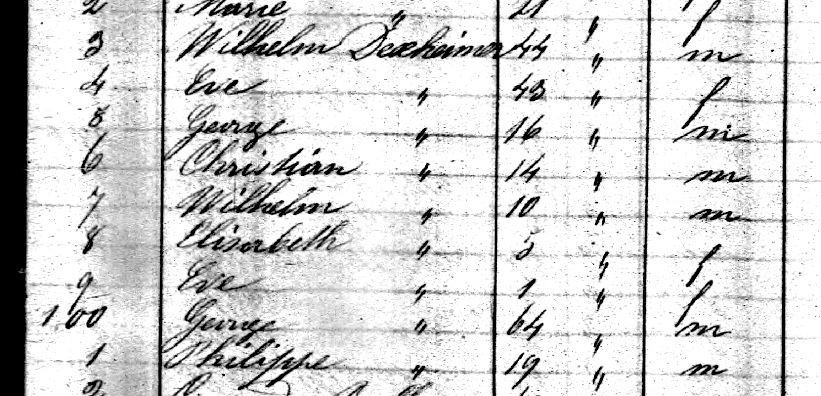 2 Marie " 21 " f
3 Wilhelm Dexheimer 44 " m
4 Eve " 43 " f
5 George " 16 " m
6 Christian " 14 " m
7 Wilhelm " 10 " m
8 Elisabeth " 5 " f
9 Eve " 1 " f
100 George " 64 " m
1 Philippe " 19 " m
2